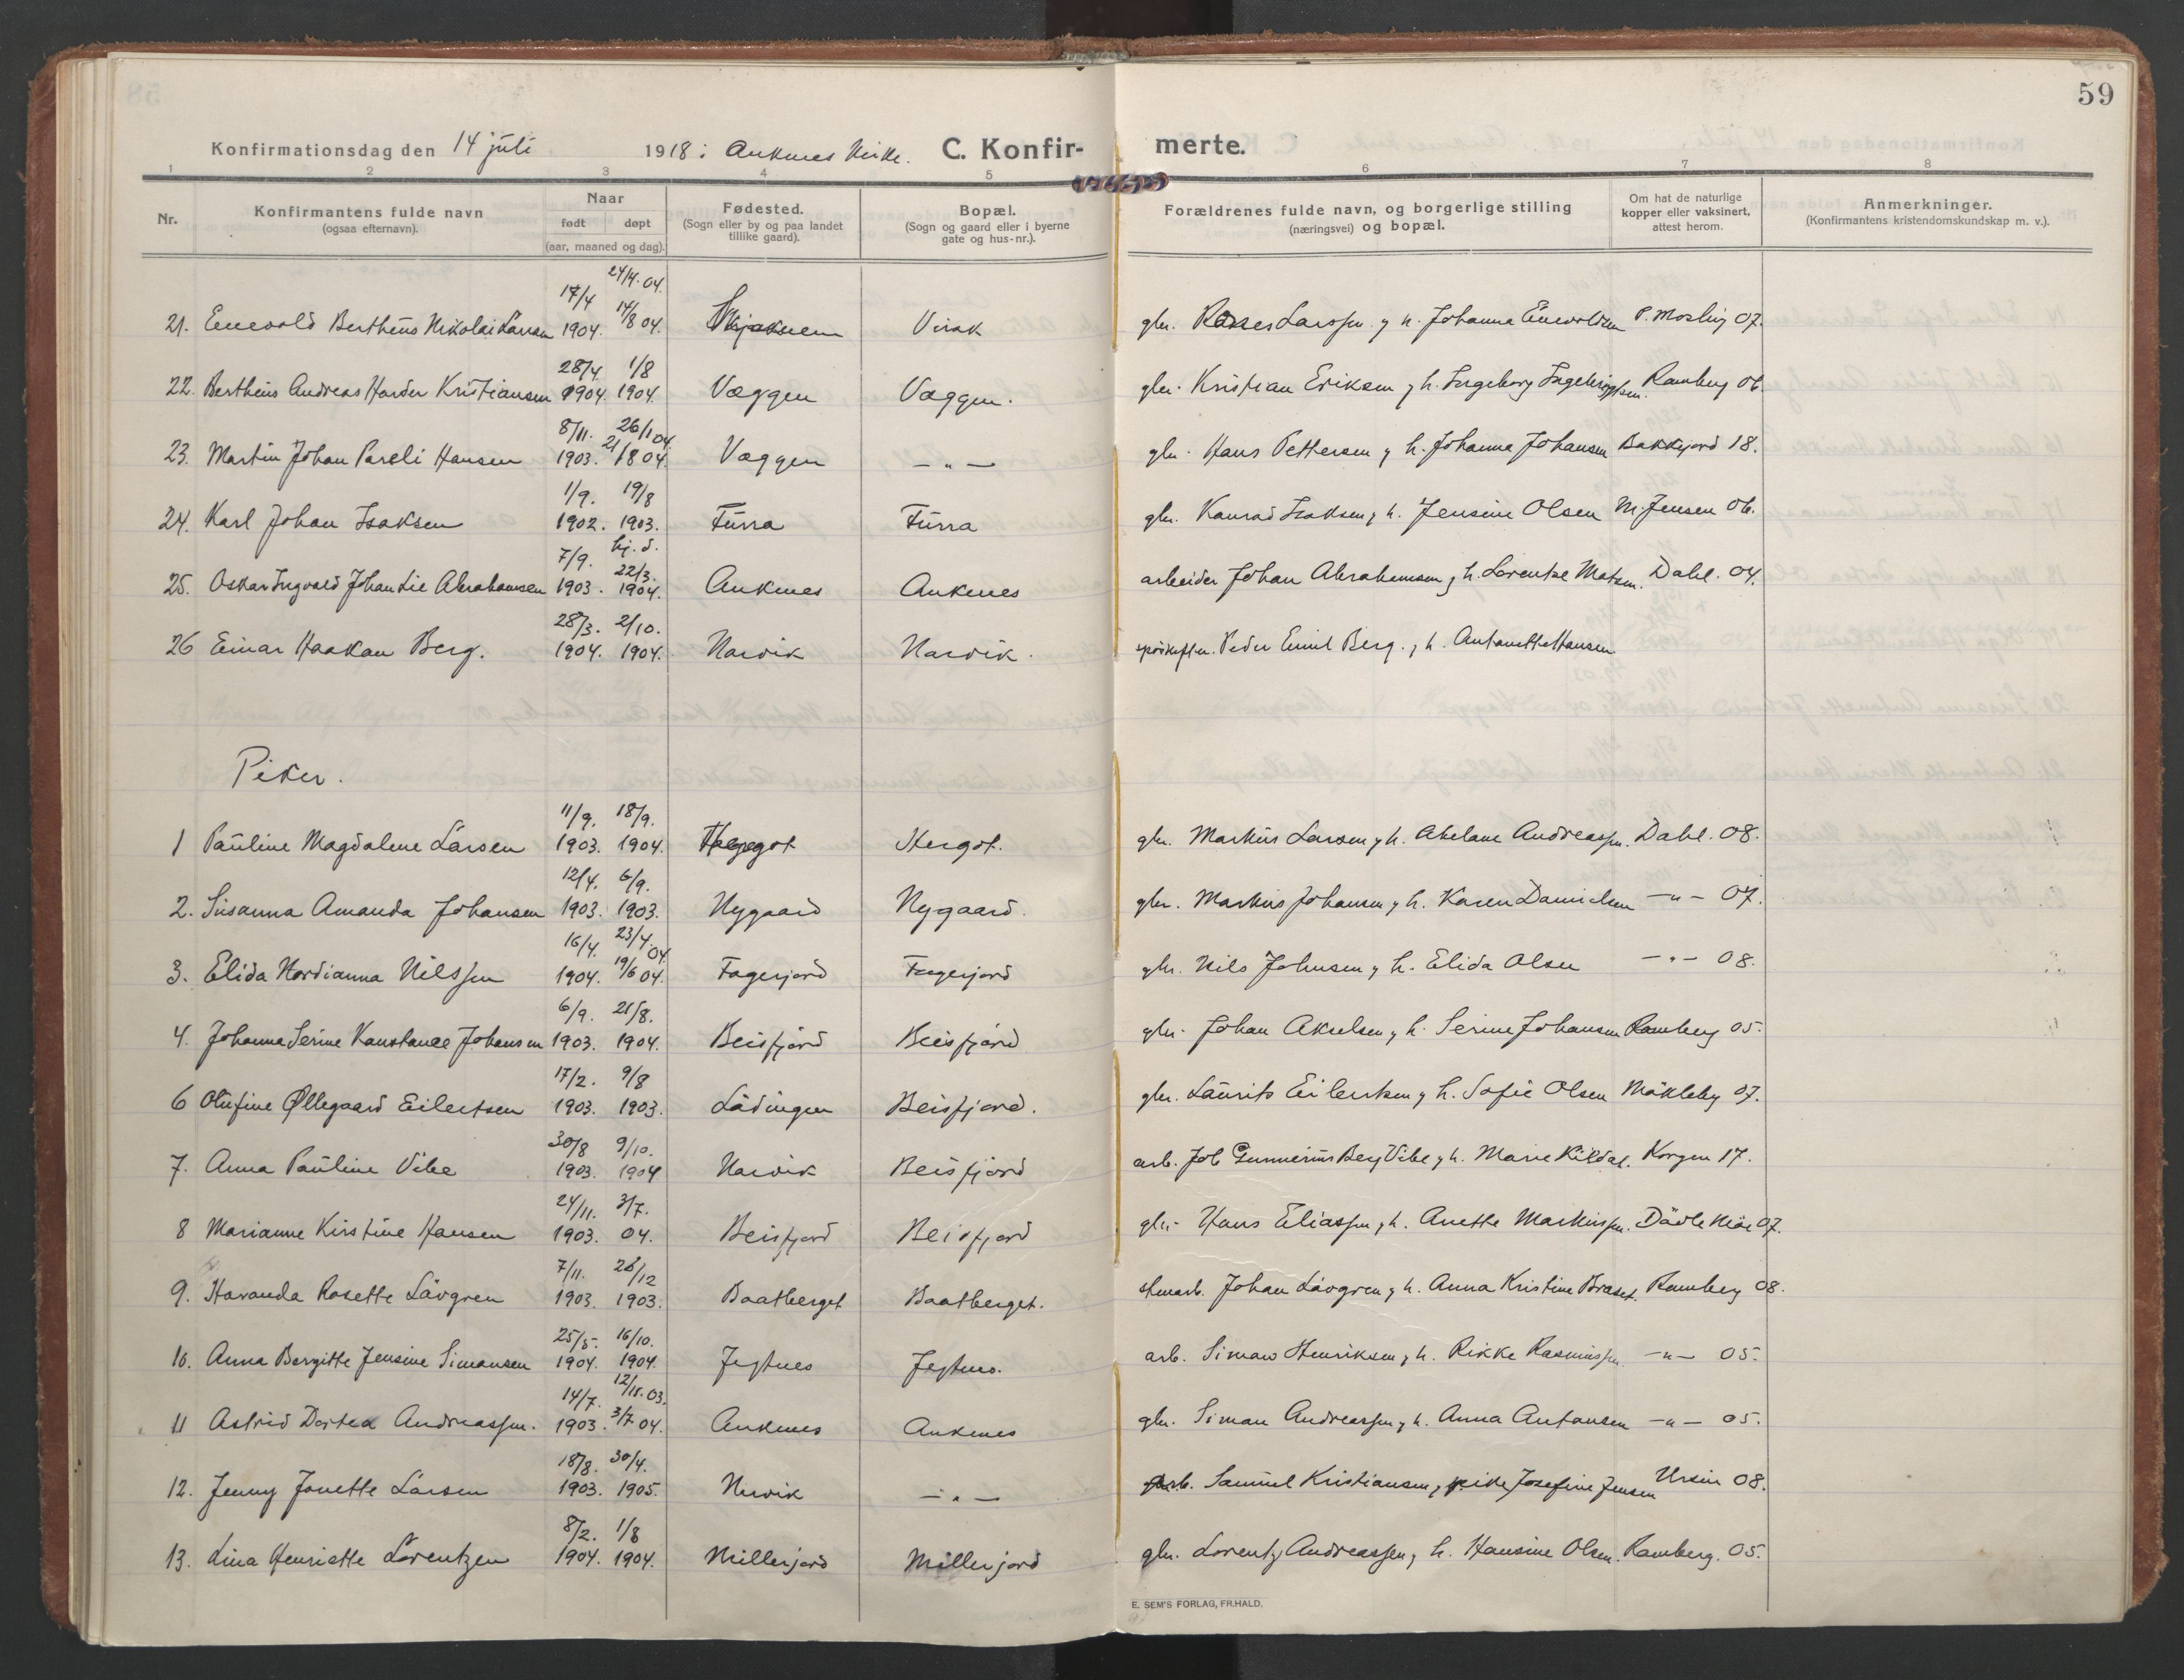 59
Konfirmationsdag den 14 juli 1918 i Ankenes Kirke. C. Konfirmerte.
1 2 3 4 5 6 7 8
Nr. Konfirmantens fulde navn (ogsaa efternavn). Naar født døpt (aar, maaned og dag). Fødested. (Sogn eller by og paa landet tillike gaard). Bopæl. (Sogn og gaard eller i byerne gate og hus-nr.). Forældrenes fulde navn, og borgerlige stilling (næringsvei) og bopæl. Om hat de naturlige kopper eller vaksinert, attest herom. Anmerkninger. (Konfirmantens kristendomskundskap m. v.).
24/4.04.
17/4 14/8 04.
21. Enevold Bertheus Nikolai Larsen 1904. Virak gbr. Larssen og h. Johanna Enevoldsen P. Mosling 07.
28/4 1/8
22. Bertheus Andreas Harder Kristiansen 1904. 1904. Væggen Væggen. gbr. Kristian Eriksen og h. Ingeborg Ingebrigtsen. Ramberg 06
8/11. 26/1 04.
23. Martin Johan Pareli Hansen 1903. 21/8 04. Væggen — " — gbr. Hans Pettersen og h. Johanna Johansen Bakkejord 18.
1/9. 19/8
24. Karl Johan Isaksen 1902. 1903. Furra Furra gbr. Konrad Isaksen og h. Jensine Olsen M. Jensen 06.
7/9. hj. d. 22/3.
25. Oskar Ingvald Johan Lie Abrahamsen 1903. 1904. Ankenes Ankenes arbeider Johan Abrahamsen og h. Lorentze Matsen. Dahl. 04.
28/3. 2/10.
26 Einar Haakon Berg. 1904. 1904. Narvik Narvik. Peder Emil Berg. og h. Antonette Hansen.
Piker.
11/9. 18/9.
1 Pauline Magdalene Larsen 1903. 1904. Hergot Hergot. gbr. Markus Larsen og h. Abelone Andreassen. Dahl. 08.
12/4. 6/9.
2. Susanna Amanda Johansen 1903. 1903. Nygaard Nygaard. gbr. Markus Johansen og h. Karen Danielsen — " — 07.
16/4. 23/4.04
3. Elida Nordianna Nilssen 1904. 19/6 04. Fagerjord Fagerjord gbr. Nils Johnsen og h. Elida Olsen — " — 08.
6/9. 21/8.
4. Johanna Serine Konstance Johansen 1903. 1904. Beisfjord Beisfjord gbr. Johan Akselsen og h. Serine Johansen Ramberg 05.
17/2. 9/8
6 Olufine Øllegaard Eilertsen 1903. 1903. Lødingen Beisfjord. gbr. Laurits Eilertsen og h. Sofie Olsen Møkleby 07.
30/8 9/10.
7. Anna Pauline Vibe 1903. 1904 Narvik Beisfjord arb. Job Gunnerius Berg Vibe og h. Marie Kildal. Korgen 17.
24/11. 3/7.
8 Marianne Kirstine Hansen 1903. 04. Beisfjord Beisfjord gbr. Hans Eliassen og h. Anette Markussen. 07.
7/11. 28/12
9. Havanda Rosette Løvgren 1903. 1903. Baatberget Baatberget. stenarb. Johan Løvgren og h. Anna Kristine Braset. Ramberg 08.
25/5. 16/10.
10. Anna Bergitte Jensine Simonsen 1904. 1904. Jegtnes Jegtnes. arb. Simon Henriksen og h. Rikke Rasmussen — " — 05.
14/7. 12/11.03.
11 Astrid Dortea Andreassen. 1903. 3/7 04. Ankenes Ankenes gbr. Simon Andreassen og h. Anna Antonsen — " — 05.
18/8. 30/4.
12. Jenny Jonette Larsen 1903. 1905. Narvik — " — arb. Samuel Kristiansen og pike Josefine Jensen Ursin 08.
8/2. 1/8
13. Lina Henriette Lorentzen 1904. 1904. Millerjord Millerjord gbr. Lorentz Andreassen og h. Hansine Olsen. Ramberg. 05.
E. SEM'S FORLAG, FR.HALD.